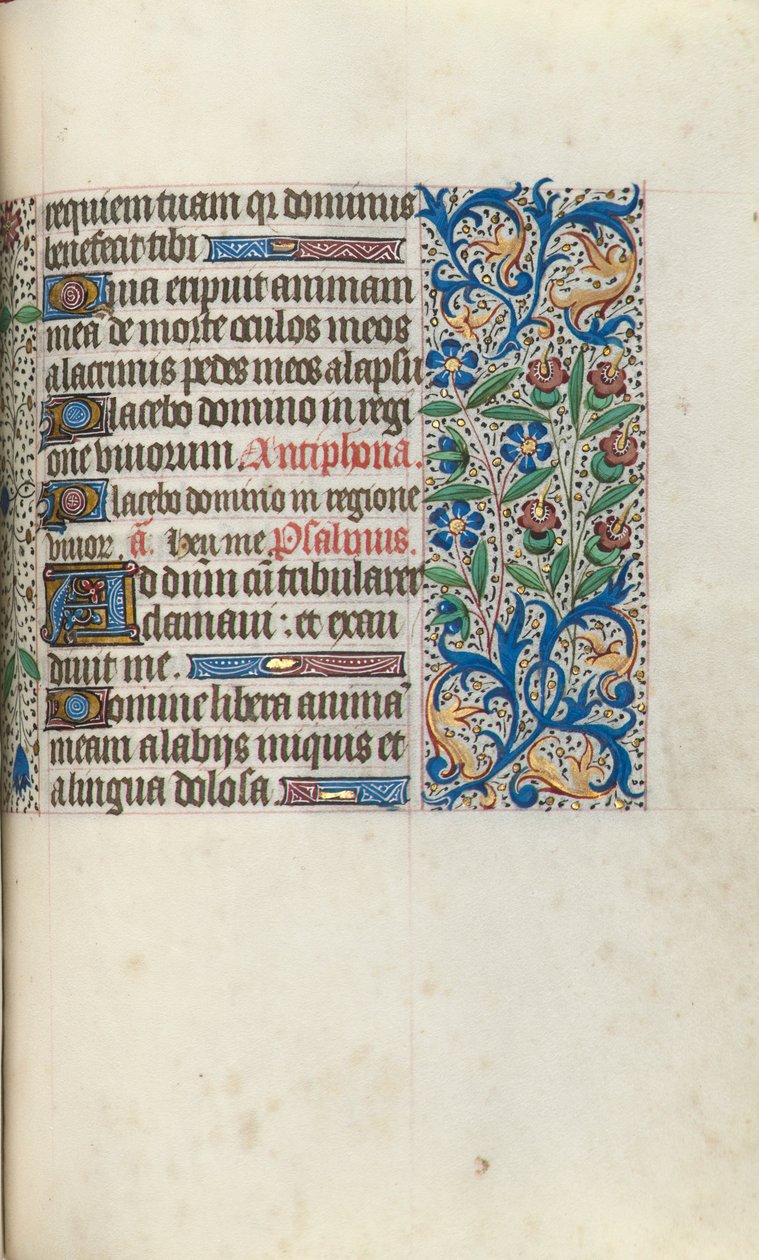 requiem tuam qr dominus
benefecit tibi
Quia eripuit animam
mea de morte oculos meos
a lacrimis pedes meos a lapsu
Placebo domino in regi
one vivorum. Antiphona.
Placebo domino in regione
vivor. a. Heu me Psalmus.
Ad dnm cu tribularer
clamavi : et exau
divit me.
Domine libera anima
meam a labijs iniquis et
a lingua dolosa.